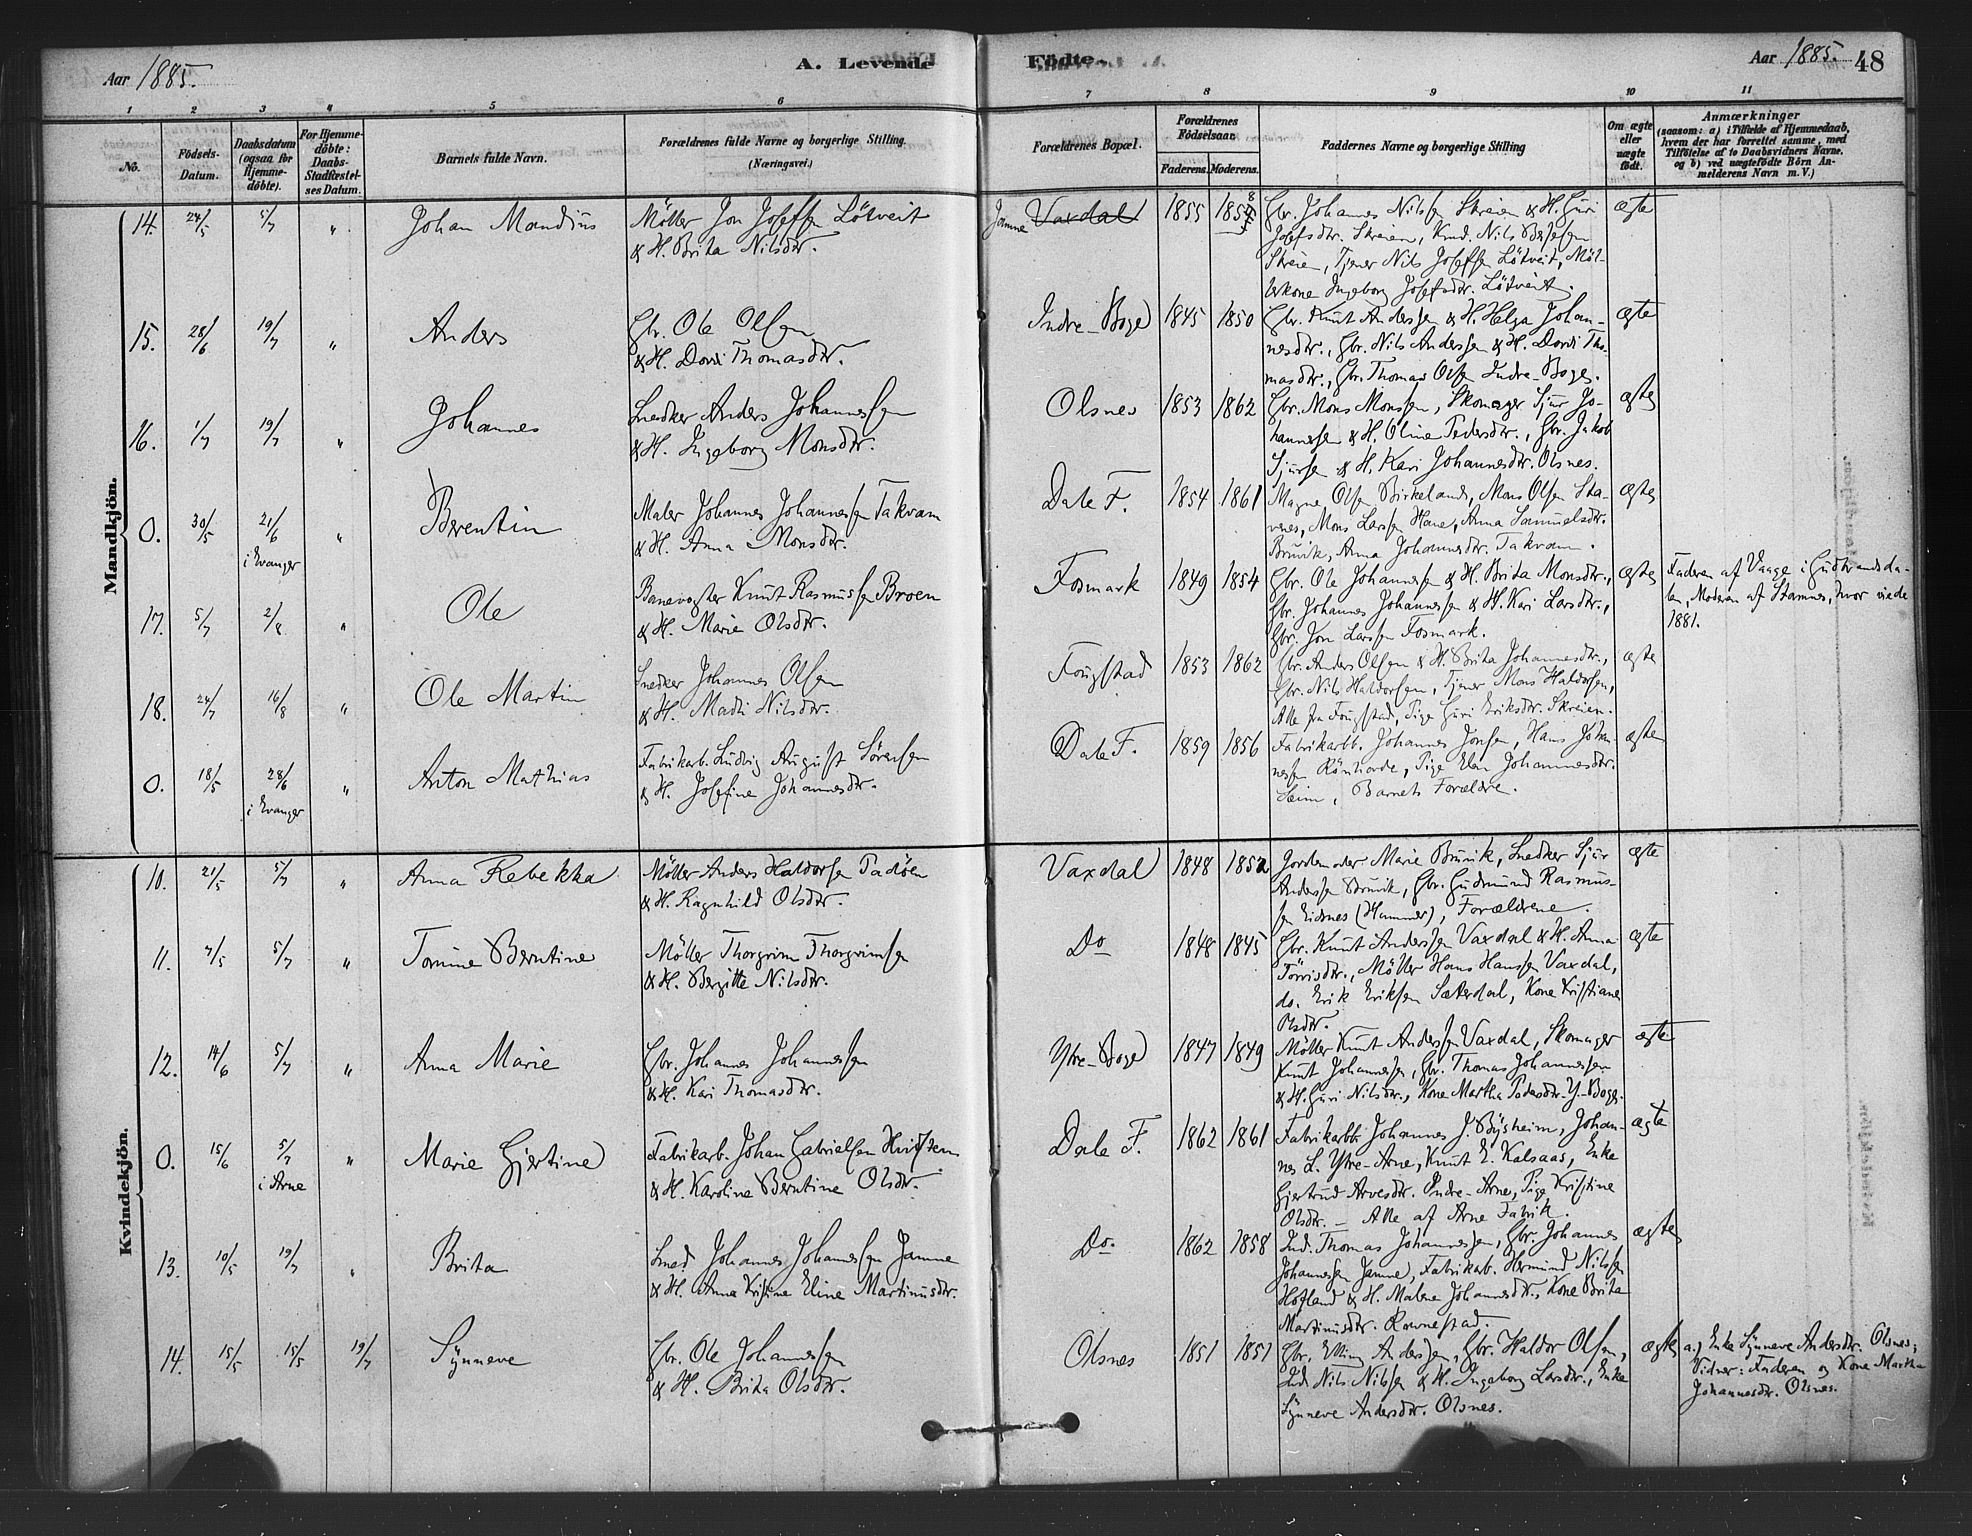 Aar 1885.
A. Levende
Födte.
Aar 1885.
48
1 2 3 4 5 6 7 8 9 10 11
No.
Födsels-
Datum.
Daabsdatum
(ogsaa för
Hjemme-
döbte).
For Hjemme-
döbte:
Daabs-
Stadfæstel-
ses Datum.
Barnets fulde Navn.
Forældrenes fulde Navne og borgerlige Stilling.
(Næringsvei.)
Forældrenes Bopæl.
Forældrenes
Födselsaar.
Faderens. Moderens.
Faddernes Navne og borgerlige Stilling
Om ægte
eller
uægte
födt.
Anmærkninger
(saasom: a) i Tilfælde af Hjemmedaab,
hvem der har forrettet samme, med
Tilföielse af to Daabsvidners Navne.
og b) ved uægtefödte Börn An-
melderens Navn m. V.)
Mandkjön.
14. 24/5 5/7 " Johan Mandius
Möller Jon Josefsen Lötveit
& H. Brita Nilsdtr.
Jamne Vaxdal 1855 1858
Gbr. Johannes Nilssen Skreien & H. Guri
Josefsdtr. Skreien, Knud Nils
Skreien, Tjener Nils Josefsen Lötveit, Möl-
lerkone Ingeborg Josefsdtr. Lötveit.
ægte
15. 28/6 19/7 " Anders
Gbr. Ole Olsen
& H. Dordi Thomasdtr.
Indre-Boge 1845 1850
Gbr. Knut Anderssen & H. Helga Johan-
nesdtr., Gbr. Nils Anderssen & H. Dordi Tho-
masdtr., Gbr. Thomas Olsen Indre-Boge.
ægte
16. 1/7 19/7 " Johannes
Snedker Anders Johannessen
& H. Ingeborg Monsdtr.
Olsnes 1853 1862
Gbr. Mons Monssen, Skomager Sjur Jo-
hannessen & H. Oline Pedersdtr., Gbr. Jakob
Sjursen & H. Kari Johannesdtr. Olsnes.
ægte
0. 30/5 21/6 i Evanger " Berentin
Maler Johannes Johannessen Takvam
& H. Anna Monsdtr.
Dale F. 1854 1861
Magne Olsen Birkeland, Mons Olsen Sta-
venes, Mons Larsen Hane, Anna Samuelsdtr.
Bruvik, Anna Johannesdtr. Takvam.
ægte
17. 5/7 2/8 " Ole
Banevogter Knut Rasmussen Broen
& H. Marie Olsdtr.
Fosmark 1849 1854
Gbr. Ole Johannessen & H. Brita Monsdtr.,
Gbr. Johannes Johannessen & H. Kari Larsdtr.,
Gbr. Jon Larssen Fosmark.
ægte
Faderen af Vaage i Gudbrandsda-
len, Moderen af Stamnes, hvor viede
1881.
18. 24/7 16/8 " Ole Martin
Snedker Johannes Olsen
& H. Madli Nilsdtr.
Fougstad 1853 1862
Gbr. Anders Olsen & H. Brita Johannesdtr.,
Gbr. Nils Haldorsen, Tjener Mons Haldorsen,
Alle fra Fougstad, Pige Guri Eriksdtr. Skreien.
ægte
0. 18/5 28/6 i Evanger " Anton Mathias
Fabrikarb. Ludvig August Sörensen
& H. Josefine Johannesdtr.
Dale F. 1859 1856
Fabrikarbb. Johannes Jonsen, Hans Johan-
nessen Rönhovde, Pige Elen Johannesdtr.
Seim, Barnets Forældre.
ægte
Kvindekjön.
10. 21/5 5/7 " Anna Rebekka
Möller Anders Haldorsen Tadöen
& H. Ragnhild Olsdtr.
Vaxdal 1848 1852
Jordemoder Marie Bruvik, Snedker Sjur
Anderssen Bruvik, Gbr. Gudmund Rasmus-
sen Eidsnes (Hammer), Forældrene.
ægte
11. 7/5 5/7 " Tomine Berntine
Möller Thorgrim Thorgrimsen
& H. Bergitte Nilsdtr.
Do 1848 1845
Gbr. Knut Anderssen Vaxdal & H. Anna
Törrisdtr., Möller Hans Hanssen Vaxdal,
do. Erik Eriksen Sæterdal, Kone Kristiane
Olsdtr.
ægte
12. 14/6 5/7 " Anna Marie
Gbr. Johannes Johannessen
& H. Kari Thomasdtr.
Ytre-Boge 1847 1849
Möller Knut Anderssen Vaxdal, Skomager
Knut Johannessen, Gbr. Thomas Johannessen
& H. Guri Nilsdtr., Kone Martha Pedersdtr. Y.-Boge.
ægte
0. 15/6 5/7 i Arne " Marie Gjertine
Fabrikarb. Johan Gabrielsen
& H. Karoline Berntine Olsdtr.
Dale F. 1862 1861
Fabrikarbb. Johannes J. Bysheim, Johan-
nes L. Ytre-Arne, Knut E. Kalsaas, Enke
Gjertrud Arvesdtr. Indre-Arne, Pige Kristine
Olsdtr. – Alle af Arne Fabrik.
ægte
13. 10/5 19/7 " Brita
Smed Johannes Johannessen Jamne
& H. Anna Kristine Eline Martinusdtr.
Do. 1862 1858
Ind. Thomas Johannessen, Gbr. Johannes
Johannessen Jamne, Fabrikarb. Hermund Nilssen
Hofland & H. Malene Johannesdtr., Kone Brita
Martinusdtr. Romnestad.
ægte
14. 15/5 15/5 19/7 Synneve
Gbr. Ole Johannessen
& H. Brita Olsdtr.
Olsnes 1851 1851
Gbr. Elling Anderssen, Gbr. Haldor Olsen,
Ind. Nils Nilssen & H. Ingeborg Larsdtr., Enke
Synneve Andersdtr. Olsnes.
ægte
a.) Enke Synneve Andersdtr. Olsnes;
Vidner: Faderen og Kone Martha
Johannesdtr. Olsnes.